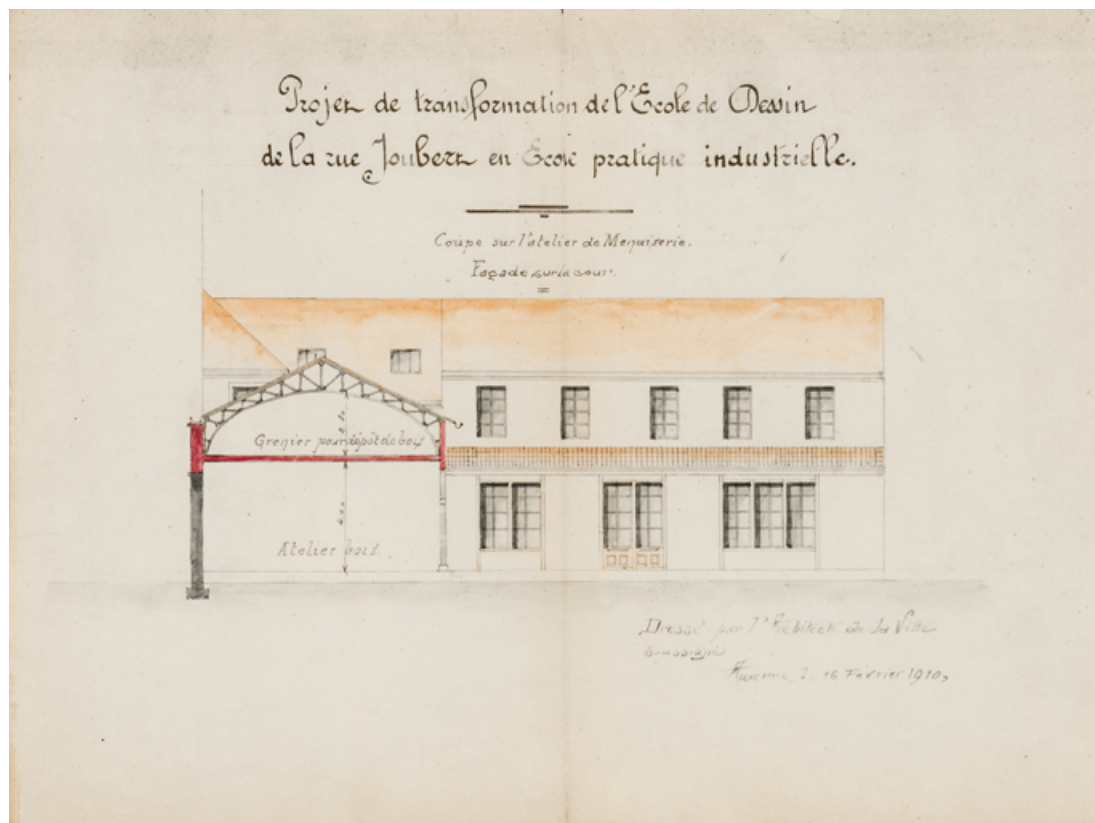 Projet de transformation de l'Ecole de Dessin
de la rue Joubert en Ecole pratique industrielle.
Coupe sur l'atelier de Menuiserie.
Façade sur la cour.
Grenier pour dépôt de bois
Atelier bois.
Dressé par l'Architecte de la Ville
soussigné
Auxerre, le 16 Février 1910,